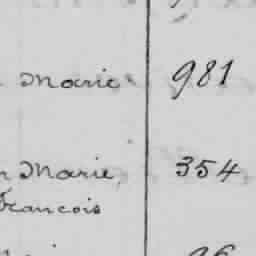 Marie 981
Marie, 354
Francois